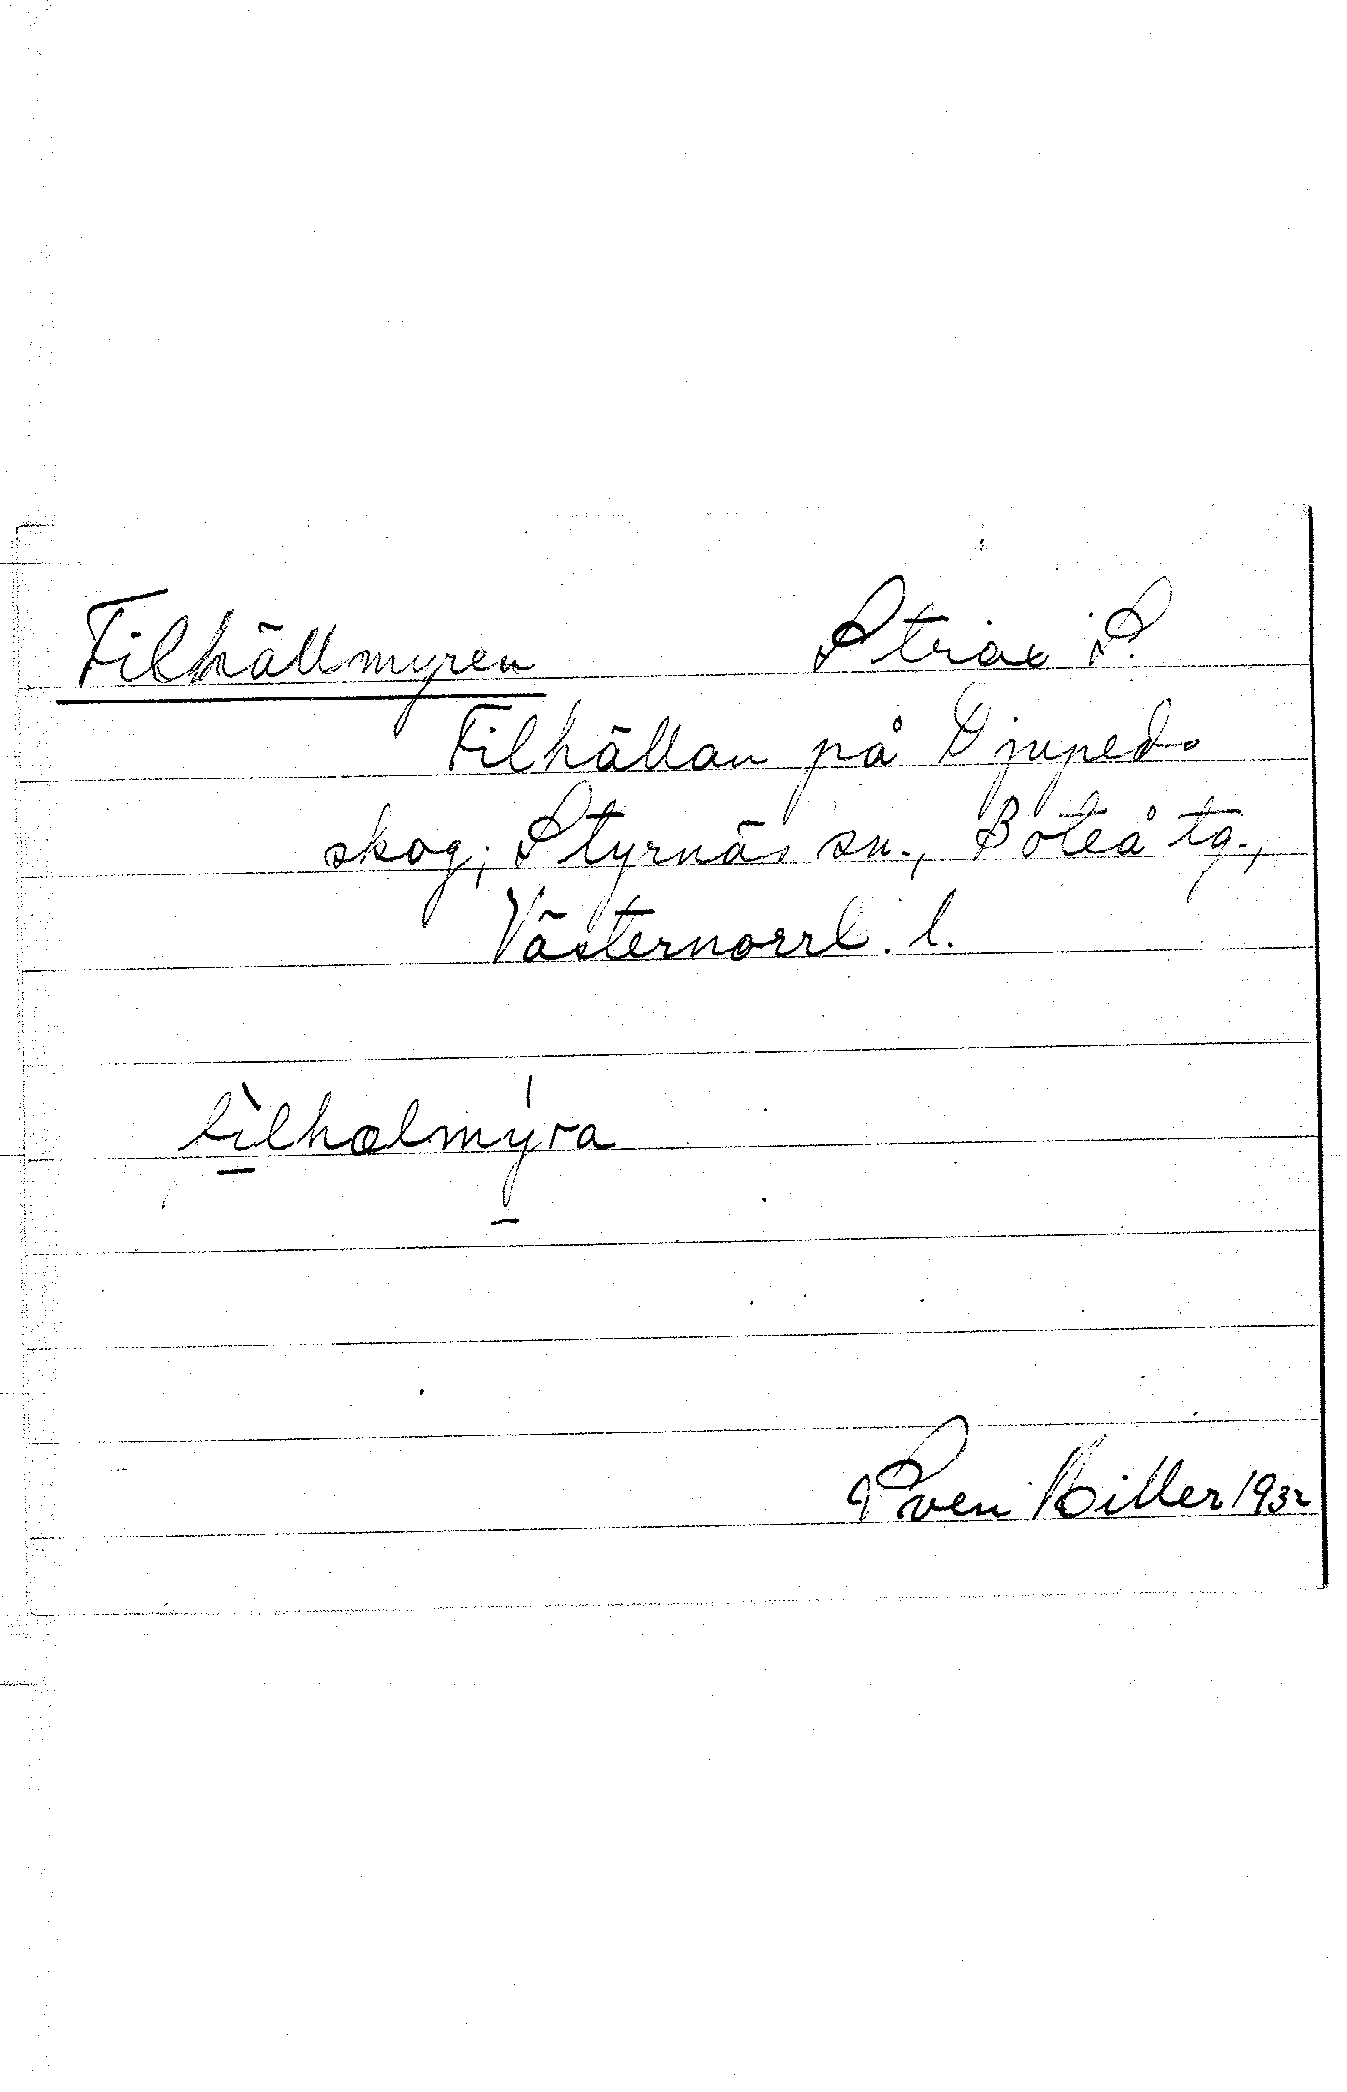 Tilhällmyren Striax S.
Tilhällan på Djupeds
skog; Styrnäs sn., Boteå tg.,
Västernorrl. l.
tilhælmyra
Sven Hiller 1932